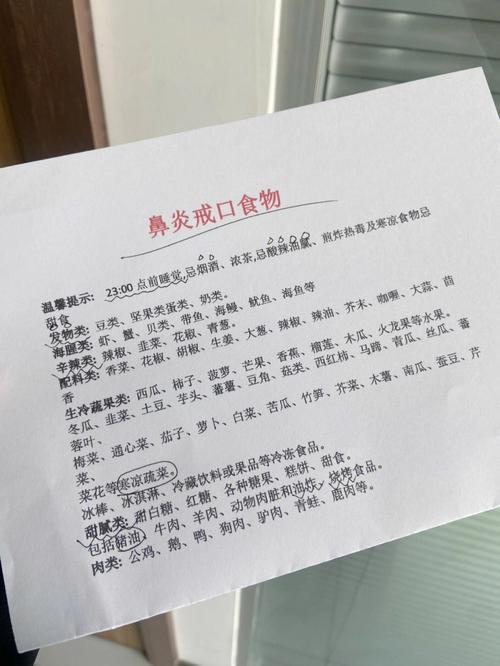 鼻炎戒口食物
温馨提示：23:00点前睡觉,忌烟酒、浓茶,忌酸辣油腻、煎炸热毒及寒凉食物忌
甜食
发物类：豆类、坚果类蛋类、奶类。
海腥类：虾、蟹、贝类、带鱼、海鳗、鱿鱼、海鱼等
辛辣类：辣椒、韭菜、花椒、青葱。
配料类：香菜、花椒、胡椒、生姜、大葱、辣椒、辣油、芥末、咖喱、大蒜、茴
香
生冷蔬果类：西瓜、柿子、菠萝、芒果、香蕉、榴莲、木瓜、火龙果等水果。
冬瓜、韭菜、土豆、芋头、蕃薯、豆角、菇类、西红柿、马蹄、青瓜、丝瓜、蕃
蓉叶、
梅菜、通心菜、茄子、萝卜、白菜、苦瓜、竹笋、芥菜、木薯、南瓜、蚕豆、芹
菜、
菜花等寒凉蔬菜。
冰棒、冰淇淋、冷藏饮料或果品等冷冻食品。
甜腻类：甜白糖、红糖、各种糖果、糕饼、甜食。
包括猪油、牛肉、羊肉、动物肉脏和油炊、烧烤食品。
肉类：公鸡、鹅、鸭、狗肉、驴肉、青蛙、鹿肉等。